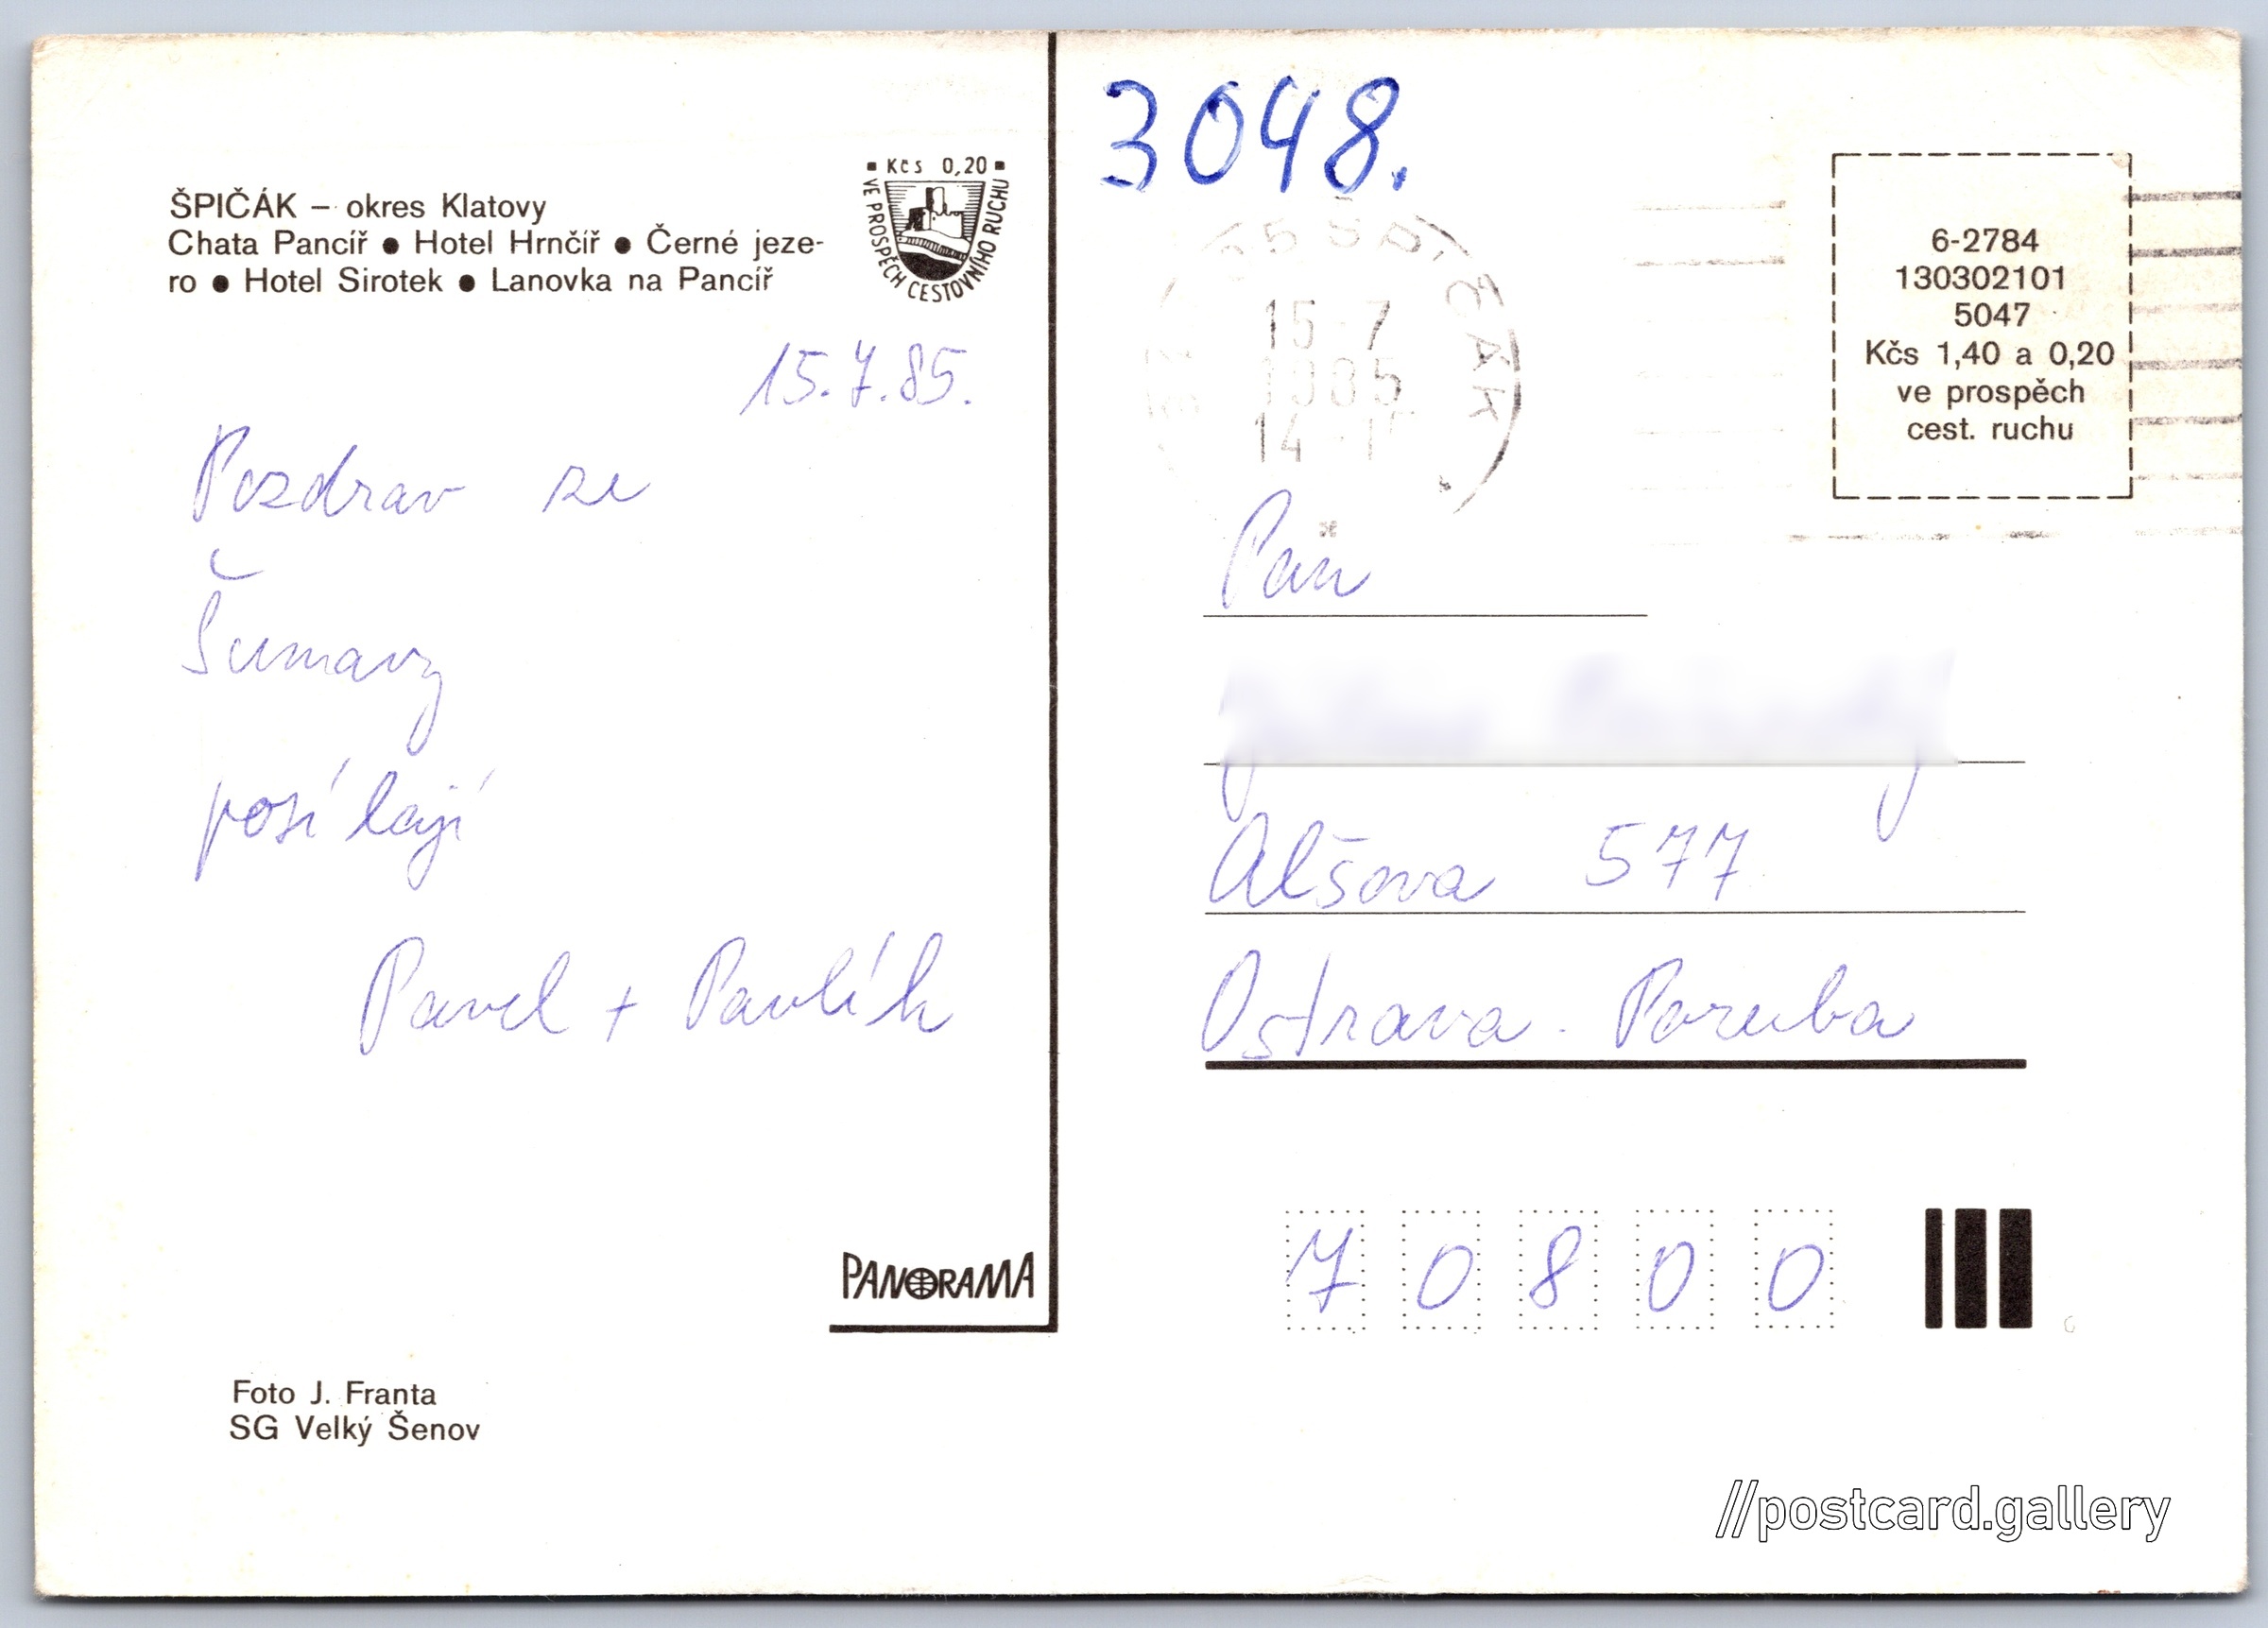 ŠPIČÁK – okres Klatovy
Chata Pancíř ● Hotel Hrnčíř ● Černé jeze-
ro ● Hotel Sirotek ● Lanovka na Pancíř
Kčs 0,20
VE PROSPĚCH CESTOVNÍHO RUCHU
15.7.85.
Pozdrav ze
Šumavy
posílají
Pavel + Pavlík
PANORAMA
Foto J. Franta
SG Velký Šenov
3048.
15 7
1985
14
6-2784
130302101
5047
Kčs 1,40 a 0,20
ve prospěch
cest. ruchu
Pan
Alšova 577
Ostrava - Poruba
7 0 8 0 0
//postcard.gallery